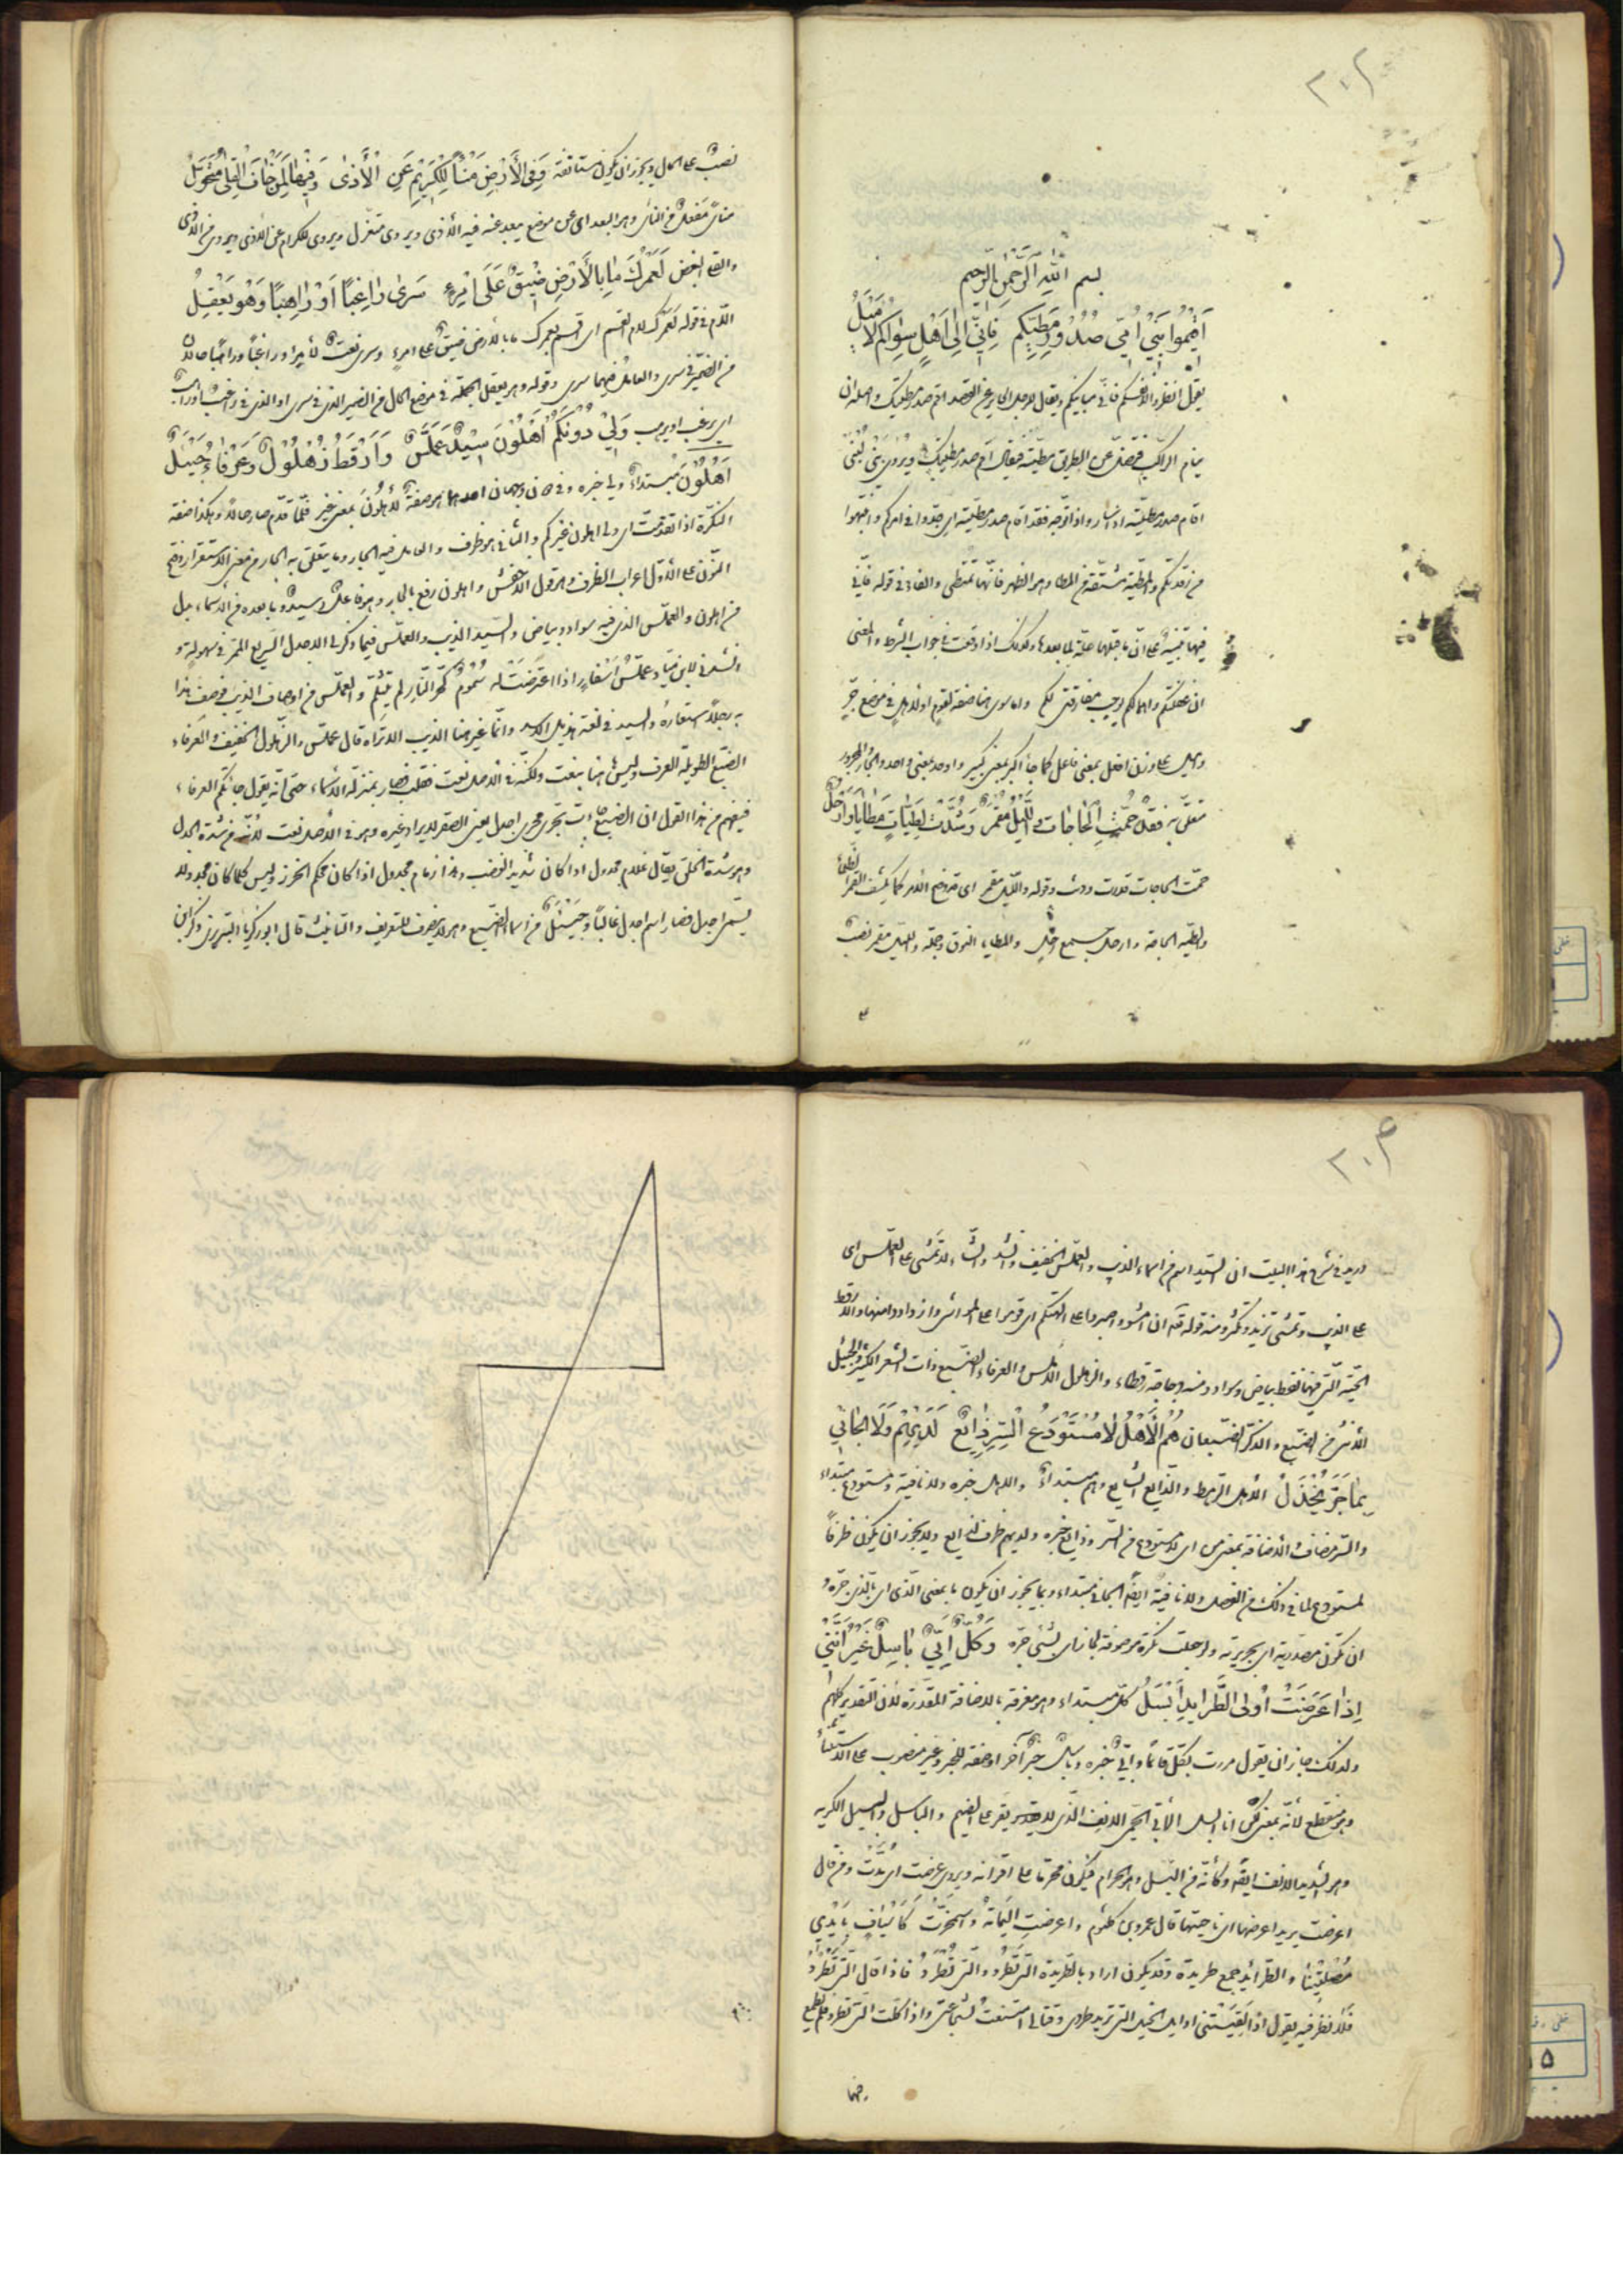 ٣٠٢
بسم الله الرحمن الرحيم
اَقِيمُوا بَنِي اُمّي صُدُورَ مَطِيّكم فَاِنّي اِلى اَهْلٍ سِواكم لَاَمْيَلُ
يقول انظروا لانفسكم فانّي مباينكم ويقال للرجل الحاير عن القصد اقم صدر مطيتك واصله ان
ينام الراكب فتضل عن الطريق مطيته فيقال له اقم صدر مطيتك ويروى بني لبنى
اقام صدر مطيته اذا سار واذا توجه فقد اقام صدر مطيته اي جدّوا في امركم وانتبهوا
من رقدتكم والمطية مشتقة من المطا وهو الظهر فانّها تمتطى والفاء في قوله فانّي
فيها تنبيه على انّ ما قبلها علة لما بعدها وكذلك اذا وقعت في جواب الشرط والمعنى
ان غفلتكم واهمالكم يوجب مفارقتي لكم واما سوى هنا صفة لقوم او لاهل في موضع جرّ
واميل على وزن افعل بمعنى فاعل كما جاء اكبر بمعنى كبير واوحد بمعنى واحد والجار والمجرور
متعلق به فَقَدْ حُمَّتِ الْحَاجَاتُ وَاللَّيْلُ مُقْمِرٌ وَشُدَّتْ لِطِيَّاتٍ مَطَايَا وَاَرْحُلُ
حمّت الحاجات قدرت وقوله والليل مقمر اي قد وضح الامر كما يكشف القمر الظلمة
والطية الحاجة وارحل جمع رحل والمطايا النوق وجملة والليل مقمر نصب
نصب على الحال ويجوز ان يكون مستانفة وَفِي الْاَرْضِ مَنْأًى لِلْكَرِيمِ عَنِ الْاَذى وَفِيهَا لِمَنْ خَافَ الْقِلى مُتَحَوَّلُ
مناى مفعل من الناى وهو البعد اى عن موضع يبعد عنه فيه الاذى ويروى متعزل ويروى للكرام عن الاذى ويروى من الاذى
والقلى البغض لَعَمْرُكَ مَا بِالْاَرْضِ ضِيقٌ عَلَى امْرِءٍ سَرى رَاغِبًا اَوْ رَاهِبًا وَهْوَ يَعْقِلُ
اللام في قوله لعمرك لام القسم اى اقسم بعمرك ما بالارض ضيق على امرء وسرى نعت لامرء وراغبا وراهبا حالان
من الضمير في سرى والعامل فيهما سرى وقوله وهو يعقل الجملة في موضع الحال من الضمير الذي في سرى او الذي في راغب او راهب
اى يرغب او يرهب وَلِيْ دُونَكُمْ اَهْلُونَ سِيْدٌ عَمَلَّسٌ وَاَرْقَطُ زُهْلُولٌ وَعَرْفَاءُ جَيْئَلُ
اَهْلُوْنَ مبتداء ولي خبره وفي دونكم وجهان احدهما هو صفة لاهلون بمعنى غير فلمّا قدّم صار حالا وهكذا صفة
النكرة اذا تقدمت اى ولي اهلون غيركم والثاني هو ظرف والعامل فيه الجار وما يتعلق به الجار من معنى الاستقرار وفتح
النون على الاول اعراب الظرف وهو قول الاخفش واهلون رفع بالجار وهو فاعل وسيد وما بعده من الاسماء بدل
من اهلون والعملس الذي فيه سواد وبياض والسيد الذيب والعملس فيما ذكر في الاصل السريع الممر في سهولة و
وانشد في لابن ميّاد عملّس اسفارٍ اذا اعترضت له سُمُوم كحرّ النار لم يتلثم والعملس من اوصاف الذيب فوصف هذا
به رجلا استعارة والسيد في لغة هذيل الاسد وانّما عنى هنا الذيب الا تراه قال عملس والزهلول الخفيف والعرفاء
الضبع الطويلة العرف وليس هنا بنعت ولكنه في الاصل نعت فغلب فصار بمنزلة الاسماء حتى انه يقول جائتكم العرفاء
فيفهم من هذا القول ان الضبع جائت تجرى مجرى اجدل يعنى الصقر لا يراد غيره وهو في الاصل نعت لانّه من شدة الجدل
وهو شدة الخلق يقال غلام مجدول اذا كان شديد العصب وهذا زمام مجدول اذا كان محكم الخرز وليس كلما كان مجدولا
يسمى اجدل فصار اسم اجدل غالبًا وجيئل من اسماء الضبع وهو لا ينصرف للتعريف والتانيث قال ابو زكريا التبريزي وذكر ابن
٣٠٣
دريد في شرح هذا البيت ان السيد اسم من اسماء الذيب والعملس الخفيف وانشد ولا تمشى على العملس اى
على الذيب وتمشى تزيد وتكثر ومنه قوله تعالى ان امشوا واصبروا على الهتكم اى قوموا على المواشى وازدادوا منها والارقط
الحية التي فيها نقط بياض وسواد ومنه دجاجة رقطاء والزهلول الاملس والعرفاء الضبع ذات الشعر الكثير والجيئل
الانثى من الضبع والذكر الضبعان هُمُ الْاَهْلُ لَا مُسْتَوْدَعُ السِّرِّ ذَائِعٌ لَدَيْهِمْ وَلَا الْجَانِي
بِمَا جَرَّ يُخْذَلُ الاهل الرهط والذايع الشايع وهم مبتداء والاهل خبره ولا نافية ومستودع مبتداء
والسر مضاف والاضافة بمعنى من اى لا مستودع من السر وذايع خبره ولديهم ظرف لذايع ولا يجوز ان يكون ظرفاً
لمستودع لما في ذلك من الفصل ولا نافية ايضًا الجاني مبتداء وبما يجوز ان يكون ما بمعنى الذى اى بالذى جره و
ان تكون مصدرية اى بجريرته ولو جعلت نكرة موصوفة لجاز اى بشئ جرّه وَكُلٌّ اَبِيٌّ بَاسِلٌ غَيْرَ اَنَّنِي
اِذَا عَرَضَتْ اُولى الطَّرَايِدِ اَبْسَلُ كل مبتداء وهو معرفة بالاضافة المقدرة لان التقدير كلهم
ولذلك جاز ان يقول مررت بكل قائما وابيّ خبره وباسل خبر آخر او صفة للخبر وغير منصوب على الاستثناء
وهو منقطع لانه بمعنى لكن انا ابسل الابيّ الحمى الانف الذى لا يقر على الضيم والباسل والبسيل الكريه
وهو الشديد الانف ايضًا وكانّه من البسل وهو الحرام فيكون محرمًا على اقرانه ويروى عرضت اى بدت ومن قال
اعرضت يريد اعرضها اى ناحيتها قال عمرو بن كلثوم واعرضتِ اليَمامة واشمخرّت كَاَسْيَافٍ بِاَيْدِي
مُصْلِتِيْنَا والطرائد جمع طريدة وقد يكون اراد بالطريدة التي تَطْرُدُ والتي تُطْرَدُ فاذا قال التى تطرد
فلا نظر فيه يقول اذا لقيتني اوايل الخيل التي تريد طردى وقتالى امتنعت لشجاعتى واذا كانت التى تطرد فلم يطمع
فيها